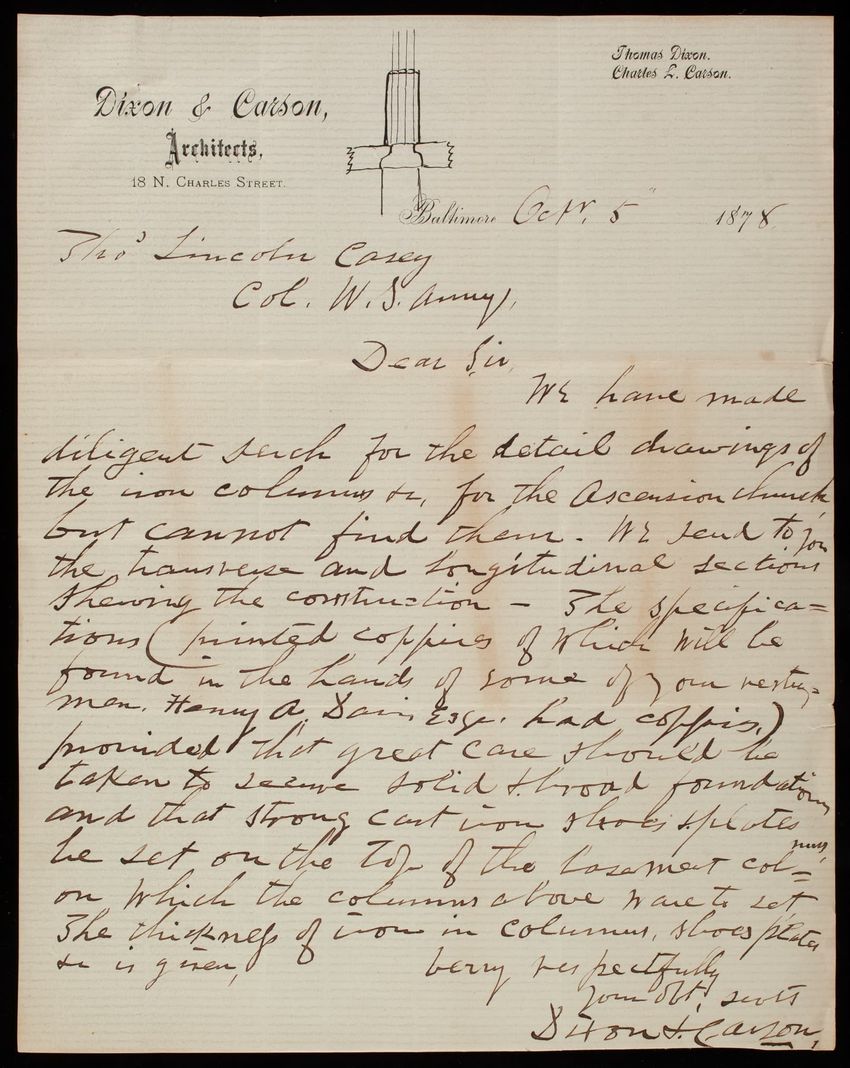 Thomas Dixon.
Charles L. Carson.
Dixon & Carson,
Architects,
18 N. Charles Street.
Baltimore Octr. 5" 1878.
Thos Lincoln Casey
Col. U. S. Army,
Dear Sir,
We have made
diligent serch for the detail drawings of
the iron columns &c, for the Ascension church,
but cannot find them - We send to you
the transverse and longitudinal sections
shewing the construction - The specifica=
tions (printed coppies of which will be
found in the hands of some of your vestry=
men. Henry A. Davis Esqr. had coppies,)
provided that great care should be
taken to secure solid & broad foundations
and that strong cast iron shoes & plates
be set on the top of the basement col=
umns,
on which the columns above ware to set
The thickness of iron in columns, shoes plates
&c is given,
verry respectfully
Your Obt. servts
Dixon & Carson,